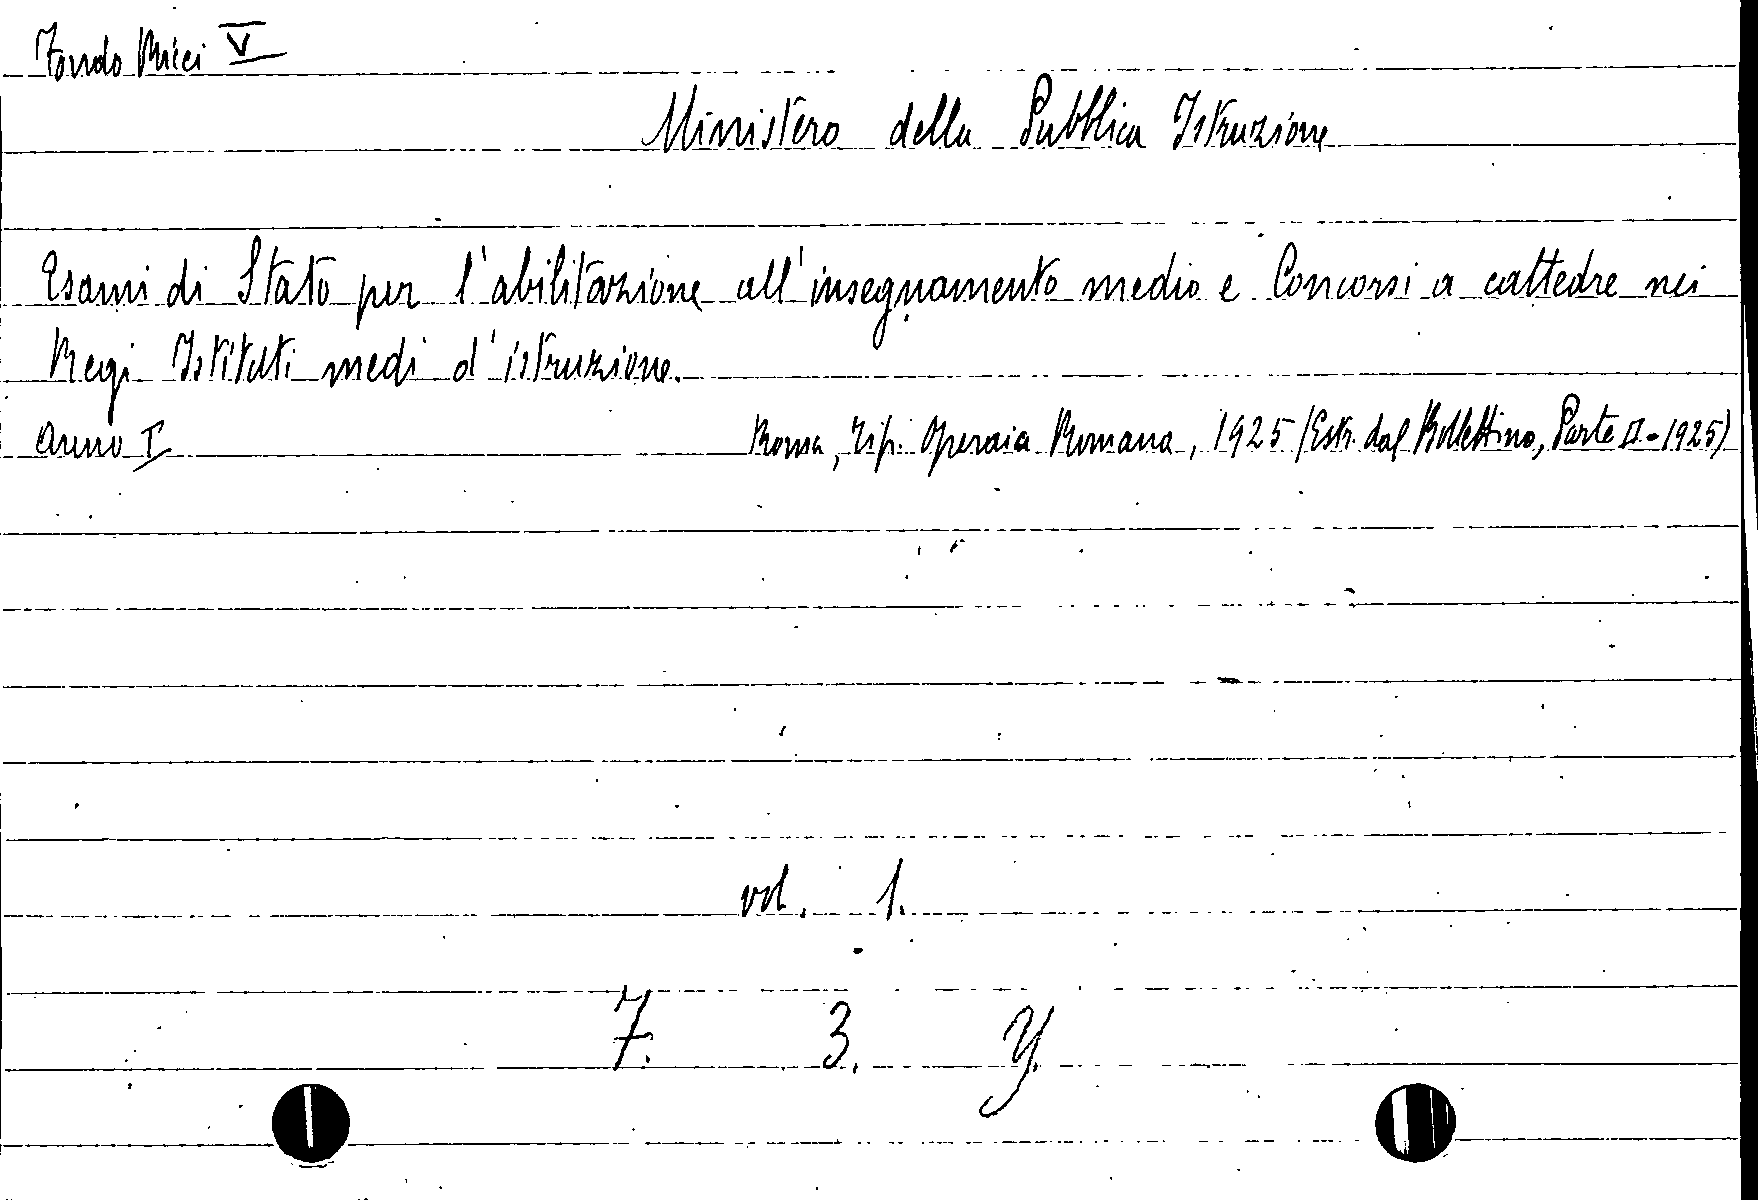 Fondo Ricci V
Ministero della Pubblica Istruzione
Esami di Stato per l'abilitazione all'insegnamento medio e Concorsi a cattedre nei
Regi Istituti medi d'istruzione.
Anno I Roma, Tip. Operaia Romana, 1925 (Estr. dal Bollettino, Parte II - 1925)
vol. 1.
7. 3. Y.